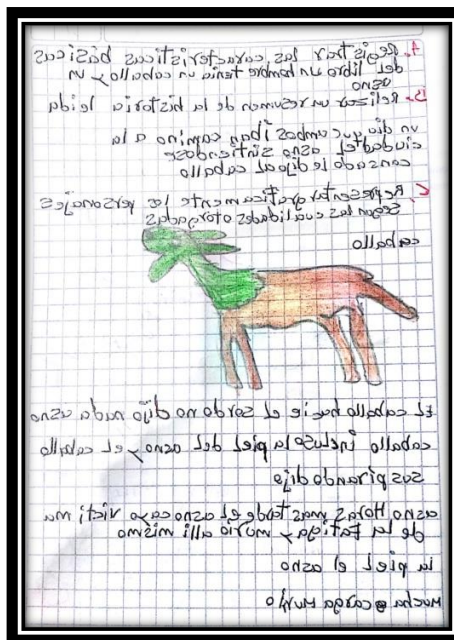 A. Registrar las caracteristicas básicas
del libro un hombre tenia un caballo y un
asno
B. Relizar un resumen de la historia leida
un dia que ambos iban camino a la
ciudad el asno sintiendose
cansado le dijo al caballo
C. Representar graficamente los personajes
segun las cualidades otorgadas
caballo
El caballo hacie el sordo no dijo nada asno
caballo incluso la piel del asno y el caballo
suspirando dijo
asno Horas mas tarde el asno cayo victi, ma
de la fatiga y murio alli mismo
la piel el asno
mucha carga